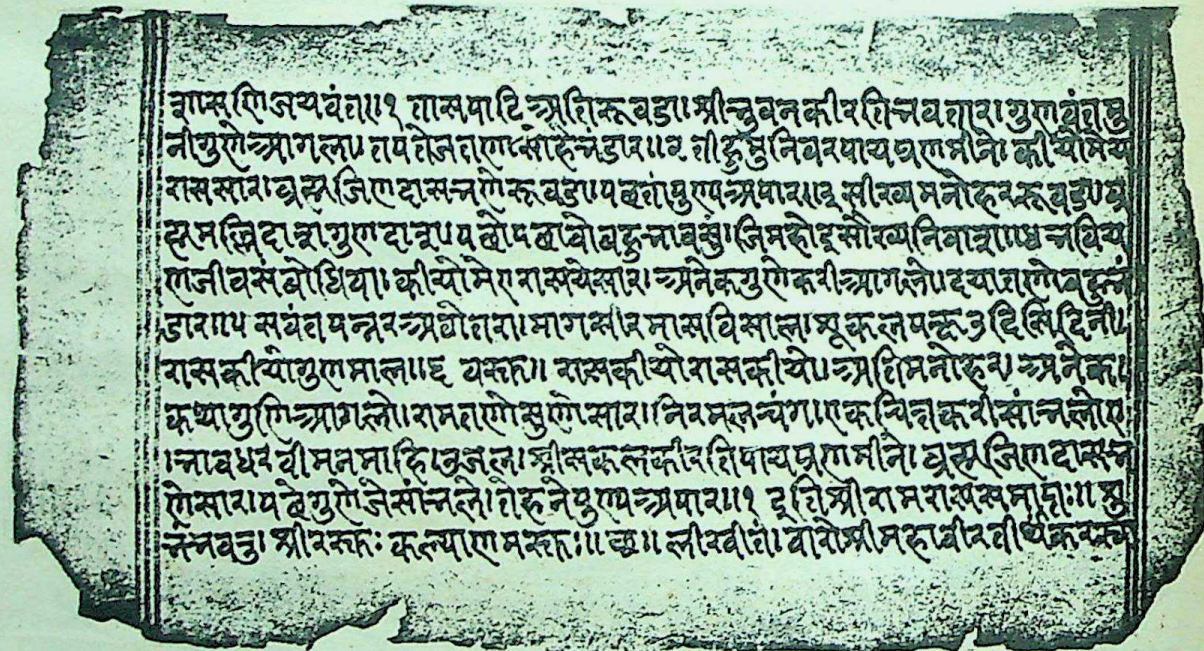 गुणसुणि जयवंत॥१ तास पाटि अति रूवडा। श्रीभुवनकीरति भवतार। गुणवंत मु
नी गुणे आगला। तप तेज तणो सोहे भंडार॥२ तीहु मुनिवर पाय प्रणमीने। कीयो मेय
रास सार। ब्रह्म जिणदास भणे रूवडो। पढतां पुण्य अपार॥३ सीख्य मनोहर रूवडा। ब्र
ह्म मल्लिदास गुणदास। पढो पढावो बहु भावसुं। जिम होइ सौख्य निवास॥४ भविय
ण जीव संबोधिवा। कीयो मे ए रास ये सार। अनेक गुणे करी आगलो। दया तणो बहु भं
डार॥५ सवंत पन्नर अठोतरा। मागसीर मास विसाल। शूकल पक्ष चउदिसि दिनी।
रास कीयो गुणमाल॥६ वस्तु॥ रास कीयो रास कीयो। अति मनोहर। अनेक।
कथा गुणि आगलो। राम तणो सुणो सार। निरमल चंग। एकचित करी सांभलो ए
। भाव धरवी मन माहि। उजल। श्रीसकलकीरति पाय प्रणमीने। ब्रह्म जिणदास भ
णे सार। पढे गुणे जे सांभले। तेहने पुण्य अपार॥१ इति श्रीरामरास समाप्तः॥ शु
भंभवतु। श्रीरस्तुः कल्याणमस्तुः॥ छ॥ लीखीतं। वारो श्रीमहावीर तीर्थंकरस्य